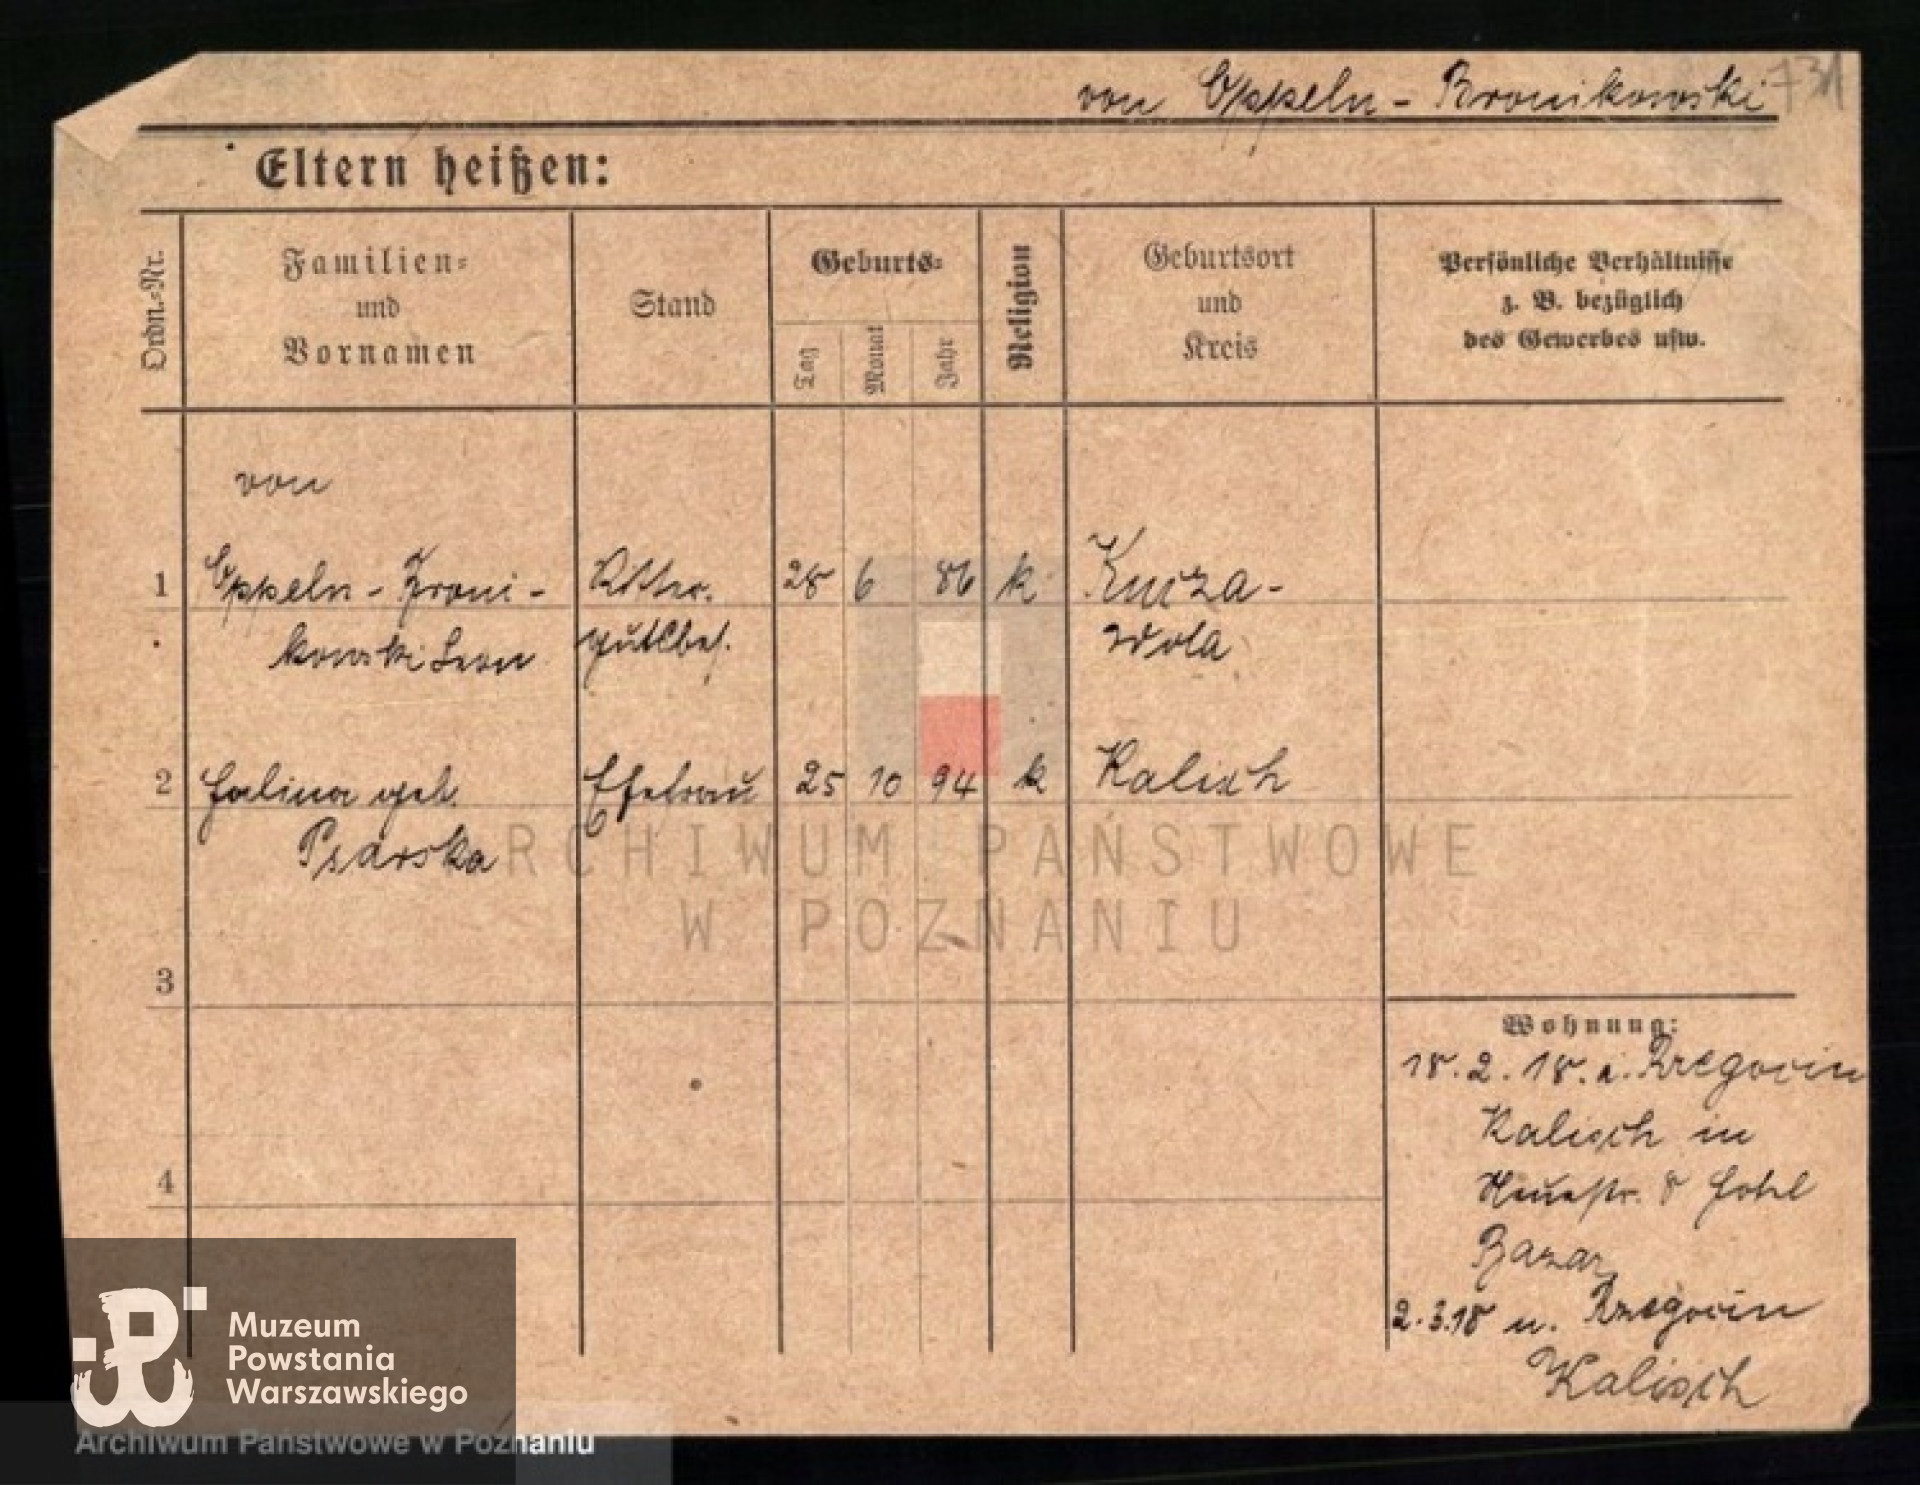 von Oppeln - Bronikowski 731
Eltern heißen:
Ordn.=Nr.
Familien=
und
Vornamen
Stand
Geburts=
Tag
Monat
Jahr
Religion
Geburtsort
und
Kreis
Persönliche Verhältnisse
z. B. bezüglich
des Gewerbes usw.
von
1 Oppeln - Broni - Ritter. 28 6 86 k
kowski Leon gutsbes. Wola
2 Halina geb. Ehefrau 25 10 94 k Kalisch
Psarska
ARCHIWUM PAŃSTWOWE
W POZNANIU
3
4
Wohnung:
18. 2. 18.
Kalisch in
Neuestr. 8 Hotel
Bazar
2.3.18 n.
Kalisch
Muzeum
Powstania
Warszawskiego
Archiwum Państwowe w Poznaniu